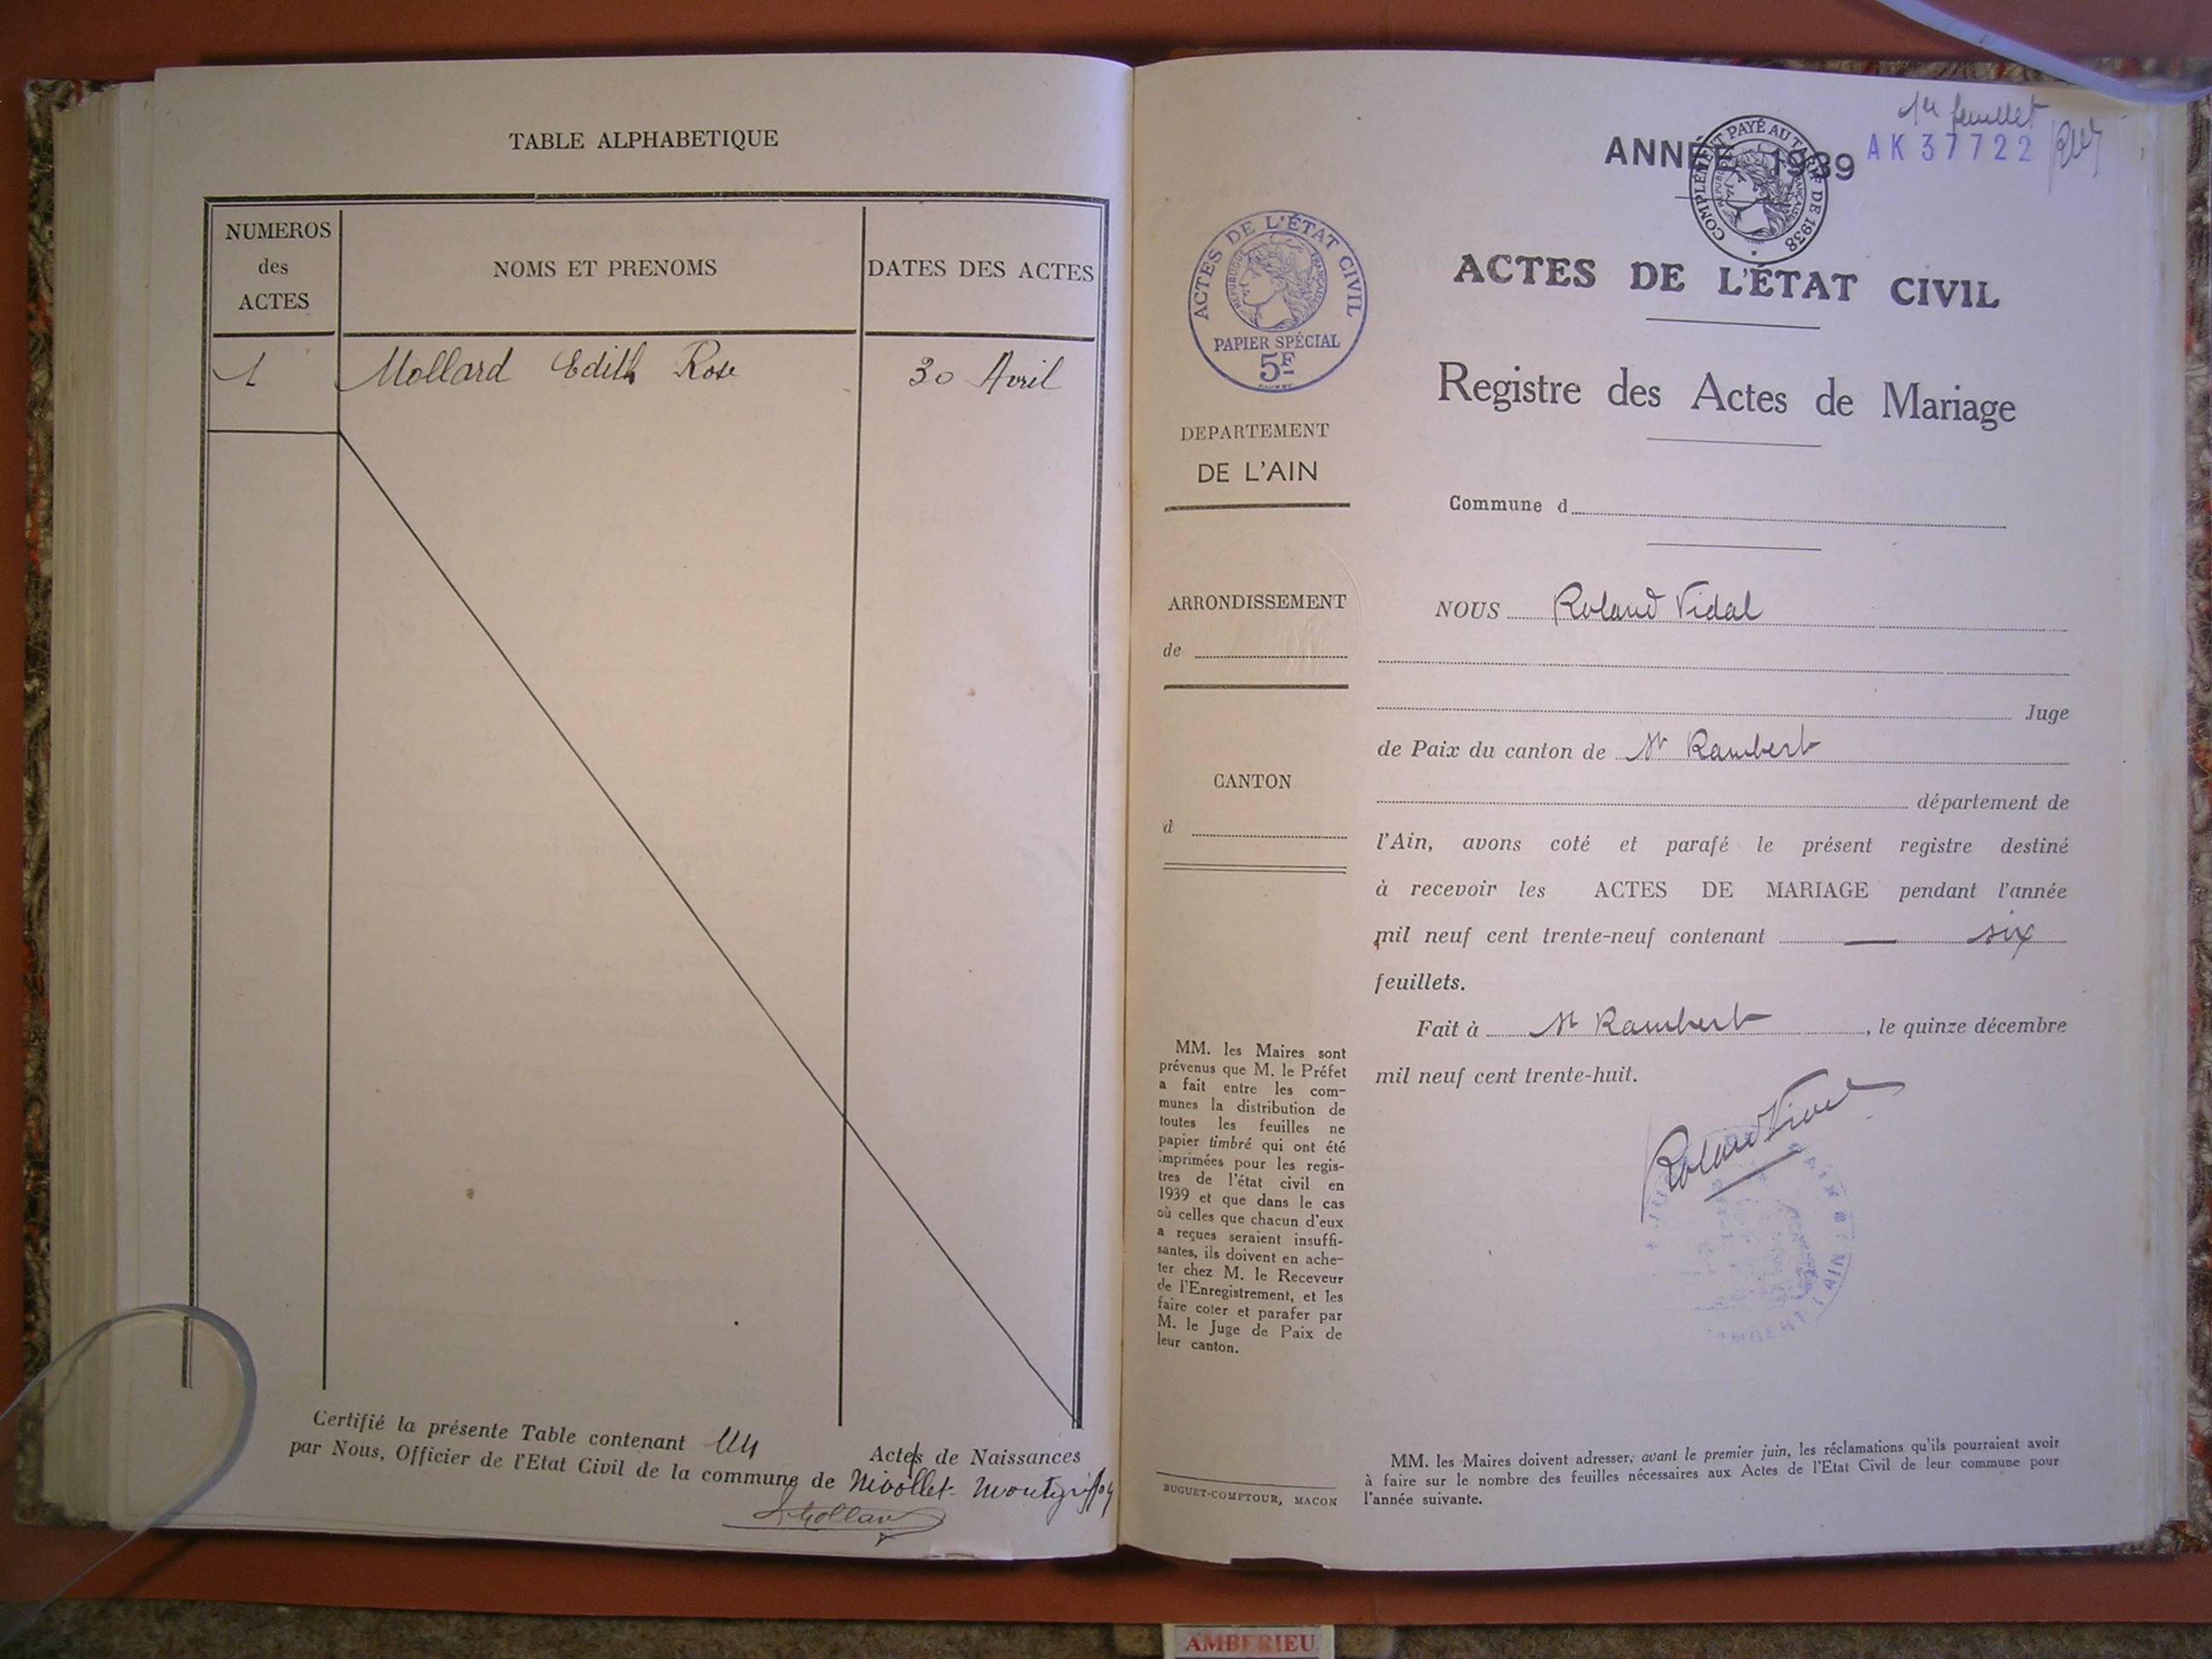 TABLE ALPHABETIQUE
NUMEROS
des
ACTES
NOMS ET PRENOMS
DATES DES ACTES
1 Mollard Edith Rose 30 Avril
Certifié la présente Table contenant un Actes de Naissances
par Nous, Officier de l'Etat Civil de la commune de Nivollet-Montgriffon
Mollard
1er feuillet
ANNÉE 1939
AK 37722
COMPLÉMENT PAYÉ AU TARIF DE 1938
ACTES DE L'ÉTAT CIVIL
RÉPUBLIQUE FRANÇAISE
PAPIER SPÉCIAL
5F
DEPARTEMENT
DE L'AIN
ARRONDISSEMENT
de
CANTON
d
MM. les Maires sont
prévenus que M. le Préfet
a fait entre les com-
munes la distribution de
toutes les feuilles ne
papier timbré qui ont été
imprimées pour les regis-
tres de l'état civil en
1939 et que dans le cas
où celles que chacun d'eux
a reçues seraient insuffi-
santes, ils doivent en ache-
ter chez M. le Receveur
de l'Enregistrement, et les
faire coter et parafer par
M. le Juge de Paix de
leur canton.
BUGUET-COMPTOUR, MACON
ACTES DE L'ÉTAT CIVIL
Registre des Actes de Mariage
Commune d
NOUS Roland Vidal
Juge
de Paix du canton de St Rambert
département de
l'Ain, avons coté et parafé le présent registre destiné
à recevoir les ACTES DE MARIAGE pendant l'année
mil neuf cent trente-neuf contenant — six
feuillets.
Fait à St Rambert, le quinze décembre
mil neuf cent trente-huit.
Roland Vidal
MM. les Maires doivent adresser, avant le premier juin, les réclamations qu'ils pourraient avoir
à faire sur le nombre des feuilles nécessaires aux Actes de l'Etat Civil de leur commune pour
l'année suivante.
AMBERIEU